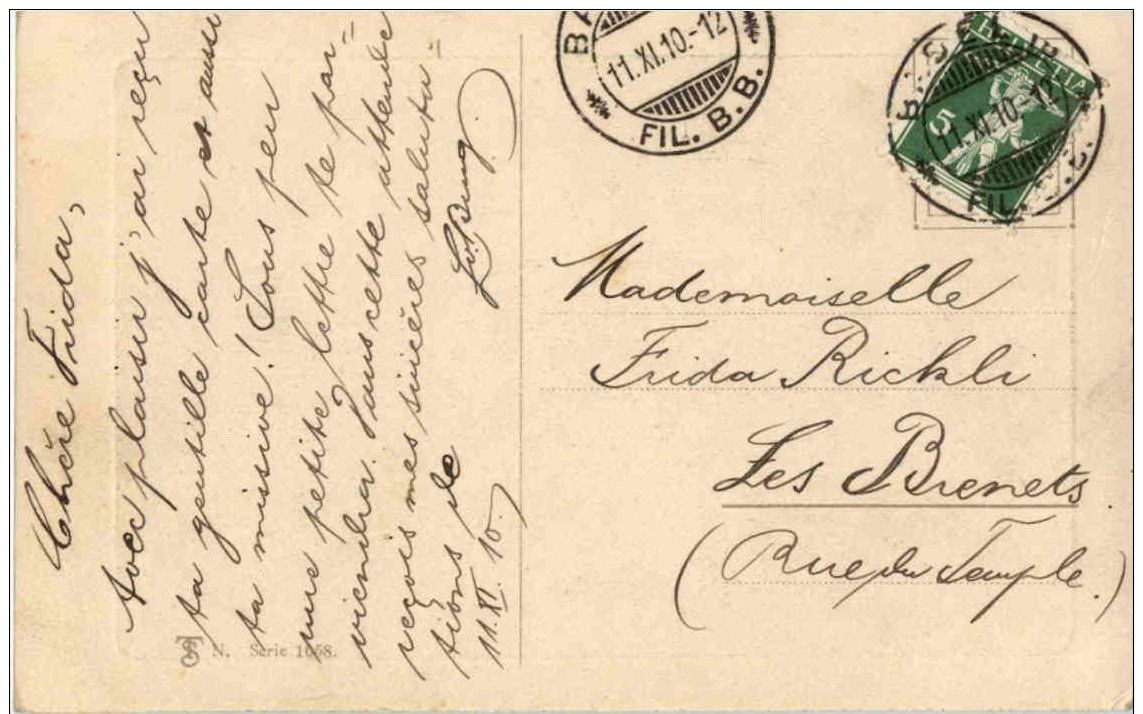 Chère Frida,
Avec plaisir j'ai reçu
ta gentille carte et aussi
ta missive! Sous peu
une petite lettre te par=
viendra. Dans cette attende
reçois mes sincères saluta=
tions de
11.XI.10.
N. Serie 1058.
11.XI.10.-12
FIL. B. B.
HELVETIA
5
11.XI.10.-12
FIL.
Mademoiselle
Frida Rickli
Les Brenets
(Rue du Temple.)